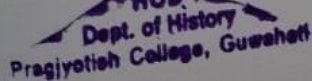 HOD
Dept. of History
Pragjyotish College, Guwahati